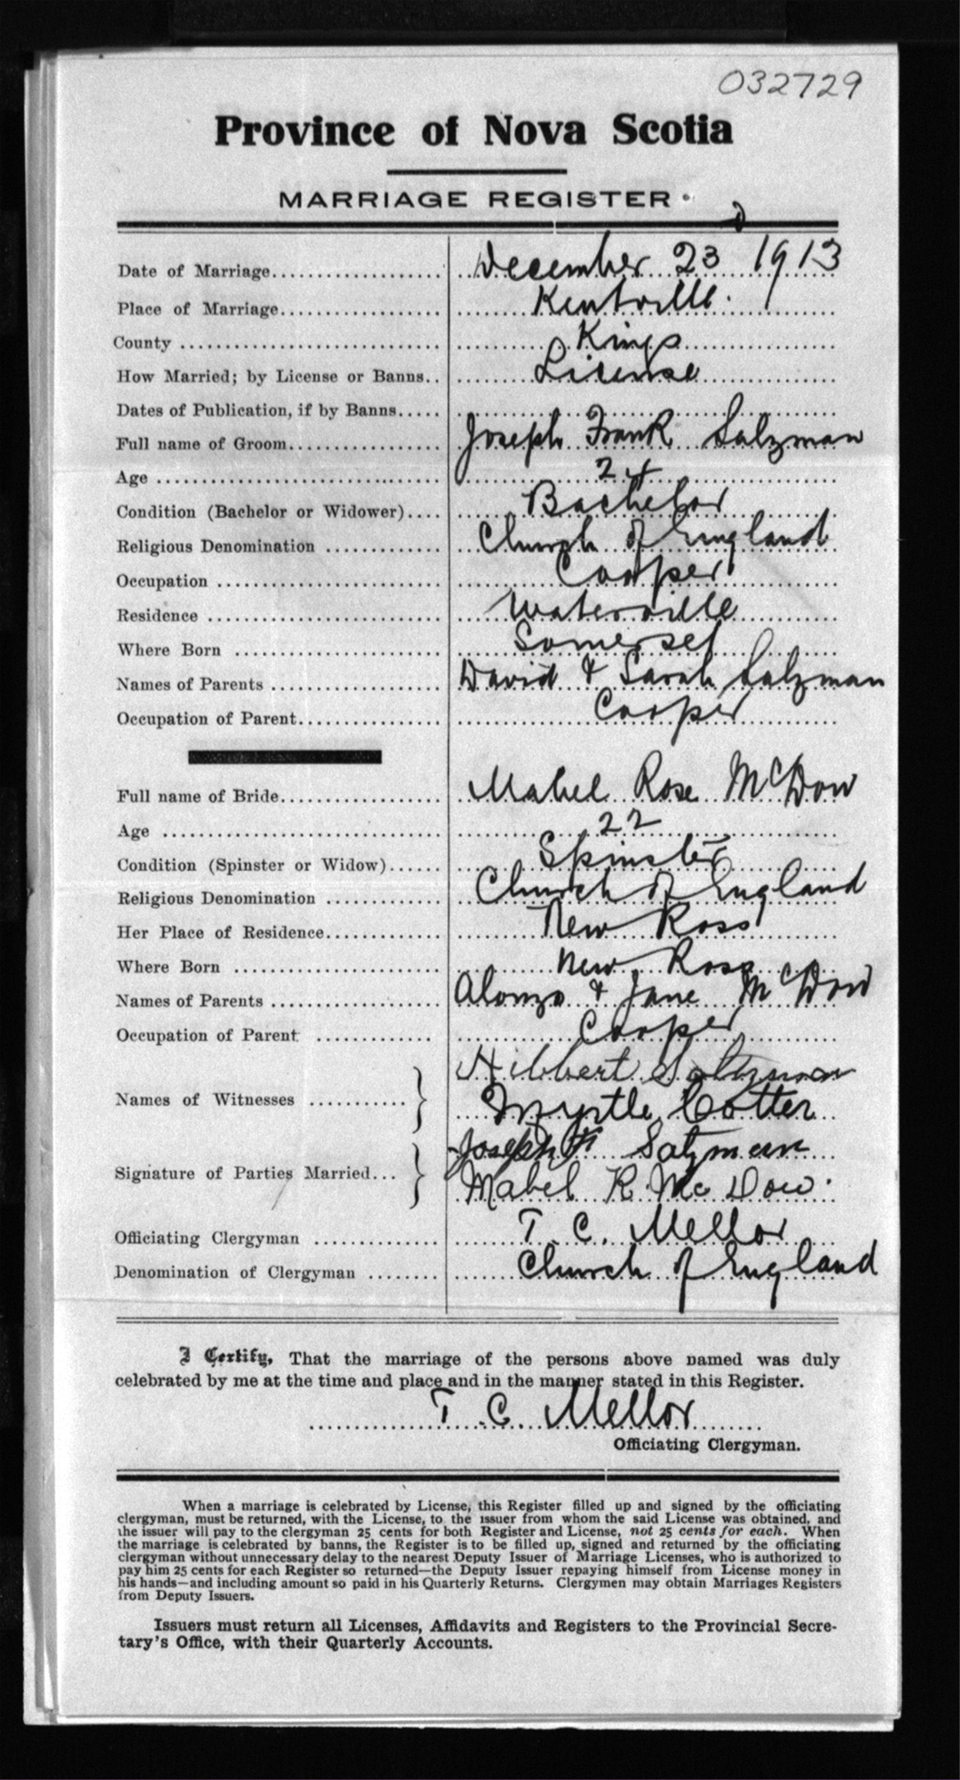 032729
Province of Nova Scotia
MARRIAGE REGISTER
Date of Marriage December 23 1913
Place of Marriage Kentville.
County Kings
How Married; by License or Banns License
Dates of Publication, if by Banns
Full name of Groom Joseph Frank Salzman
Age 24
Condition (Bachelor or Widower) Bachelor
Religious Denomination Church of England
Occupation Cooper
Residence Waterville
Where Born Somerset
Names of Parents David & Sarah Salzman
Occupation of Parent Cooper
Full name of Bride Mabel Rose McDow
Age 22
Condition (Spinster or Widow) Spinster
Religious Denomination Church of England
Her Place of Residence New Ross
Where Born New Ross
Names of Parents Alonzo & Jane McDow
Occupation of Parent Cooper
Hibbert Saltzman
Names of Witnesses
Myrtle Cotter
Joseph F Satzman
Signature of Parties Married
Mabel R. McDow.
Officiating Clergyman T. C. Mellor
Denomination of Clergyman Church of England
I Certify, That the marriage of the persons above named was duly
celebrated by me at the time and place and in the manner stated in this Register.
T. C. Mellor
Officiating Clergyman.
When a marriage is celebrated by License, this Register filled up and signed by the officiating
clergyman, must be returned, with the License, to the issuer from whom the said License was obtained, and
the issuer will pay to the clergyman 25 cents for both Register and License, not 25 cents for each. When
the marriage is celebrated by banns, the Register is to be filled up, signed and returned by the officiating
clergyman without unnecessary delay to the nearest Deputy Issuer of Marriage Licenses, who is authorized to
pay him 25 cents for each Register so returned—the Deputy Issuer repaying himself from License money in
his hands—and including amount so paid in his Quarterly Returns. Clergymen may obtain Marriages Registers
from Deputy Issuers.
Issuers must return all Licenses, Affidavits and Registers to the Provincial Secre-
tary's Office, with their Quarterly Accounts.